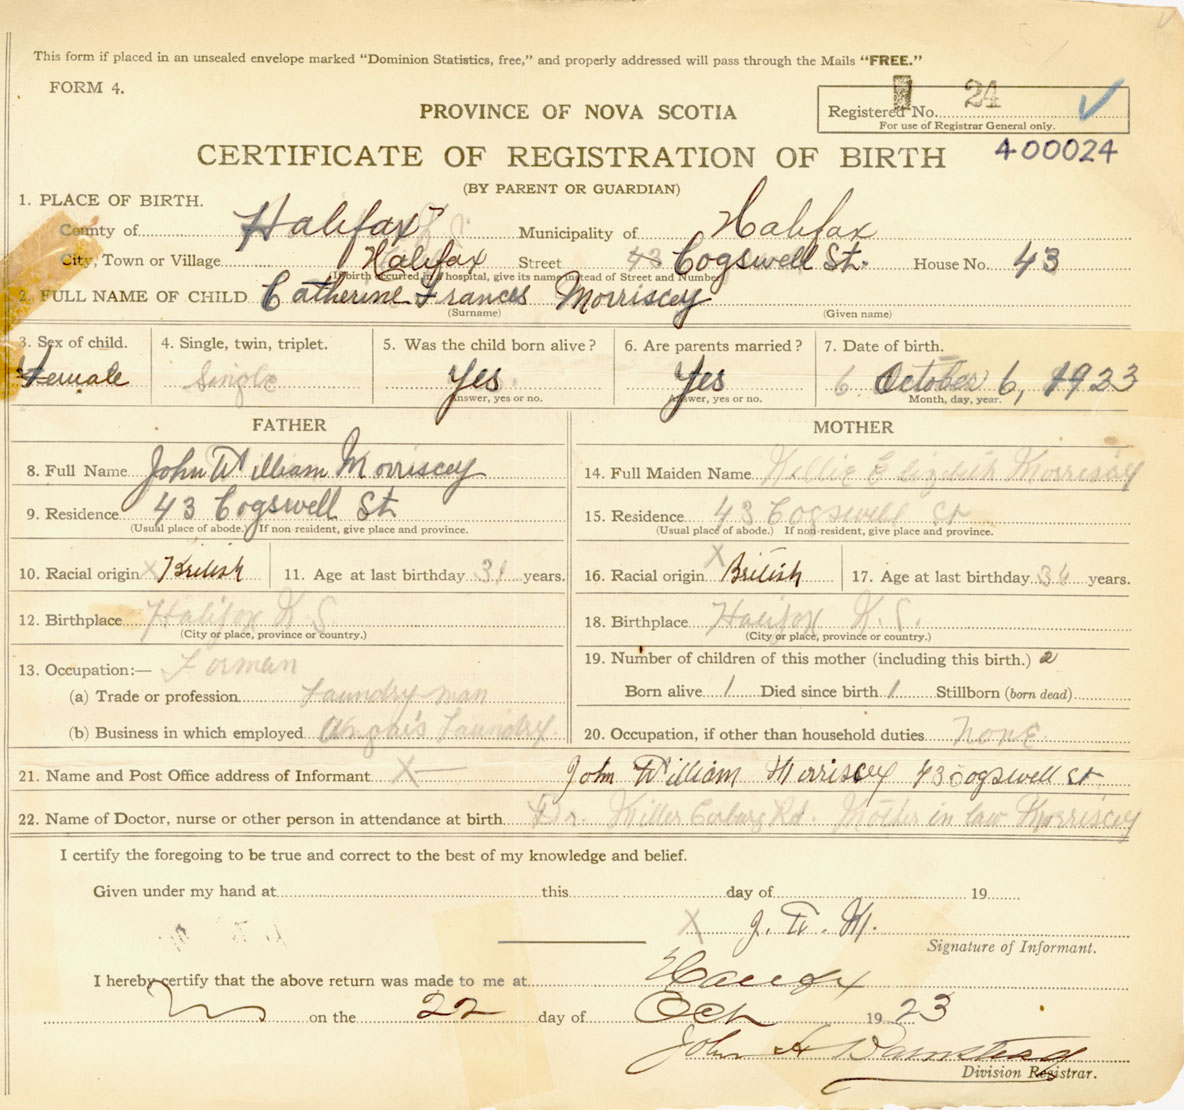 This form if placed in an unsealed envelope marked "Dominion Statistics, free," and properly addressed will pass through the Mails "FREE."
FORM 4.
PROVINCE OF NOVA SCOTIA
Registered No. 24
For use of Registrar General only.
CERTIFICATE OF REGISTRATION OF BIRTH
400024
(BY PARENT OR GUARDIAN)
1. PLACE OF BIRTH.
County of Halifax Municipality of Halifax
City, Town or Village Halifax Street 43 Cogswell St. House No. 43
If birth occured in a hospital, give its name instead of Street and Number
2. FULL NAME OF CHILD Catherine Frances Morriscey
(Surname) (Given name)
3. Sex of child. 4. Single, twin, triplet. 5. Was the child born alive? 6. Are parents married? 7. Date of birth.
Female Single Yes Yes 6 October 6, 1923
Answer, yes or no. Answer, yes or no. Month, day, year.
FATHER
8. Full Name John William Morriscey
9. Residence 43 Cogswell St
(Usual place of abode.) If non resident, give place and province.
10. Racial origin X British 11. Age at last birthday 31 years.
12. Birthplace Halifax N. S.
(City or place, province or country.)
13. Occupation:— Forman
(a) Trade or profession Laundry man
(b) Business in which employed Laundry
MOTHER
14. Full Maiden Name Elizabeth Morriscey
15. Residence 43 Cogswell St
(Usual place of abode.) If non-resident, give place and province.
16. Racial origin X British 17. Age at last birthday years.
18. Birthplace Halifax N. S.
(City or place, province or country.)
19. Number of children of this mother (including this birth.) 2
Born alive 1 Died since birth 1 Stillborn (born dead)
20. Occupation, if other than household duties None
21. Name and Post Office address of Informant X John William Morriscey 43 Cogswell St
22. Name of Doctor, nurse or other person in attendance at birth Dr. Miller Rd. Mother in law Morriscey
I certify the foregoing to be true and correct to the best of my knowledge and belief.
Given under my hand at this day of 19
X J. W. M.
Signature of Informant.
I hereby certify that the above return was made to me at Halifax
on the 22 day of Oct 1923
John A
Division Registrar.